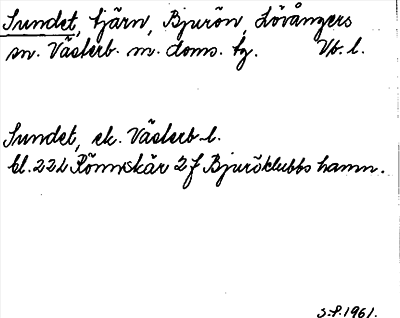 Sundet, tjärn, Bjurön, Lövångers
sn. Västerb. n. doms. tg. Vb. l.
Sundet, ek. Västerb. l.
bl. 22L Rönnskär 2f Bjuröklubbs hamn.
S.P. 1961.